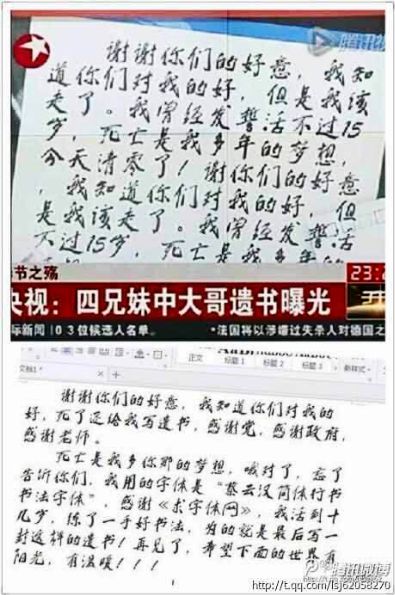 腾讯视
谢谢你们的好意，我知
道你们对我的好，但是我该
走了。我曾经发誓活不过15
岁，死亡是我多年的梦想，
今天清零了！谢谢你们的好意
，我知道你们对我的好，但
是我该走了。我曾经发誓活
不过15岁，死亡是我多年的
节之殇
央视：四兄妹中大哥遗书曝光
23:2
际新闻 103位候选人名单。
·法国将以涉嫌过失杀人对德国之
正文 标题 1 标题 1 新样式
谢谢你们的好意，我知道你们对我的
好，死了还给我写遗书，感谢党，感谢政府，
感谢老师。
死亡是我多你那的梦想，哦对了，忘了
告诉你们，我用的字体是“蔡云汉简体行书
书法字体”，感谢《求字体网》，我活到十
几岁，练了一手好书法，为的就是最后写一
封这样的遗书！再见了，希望下面的世界有
阳光，有温暖！！！
腾讯微博
http://t.qq.com/lsj62058270